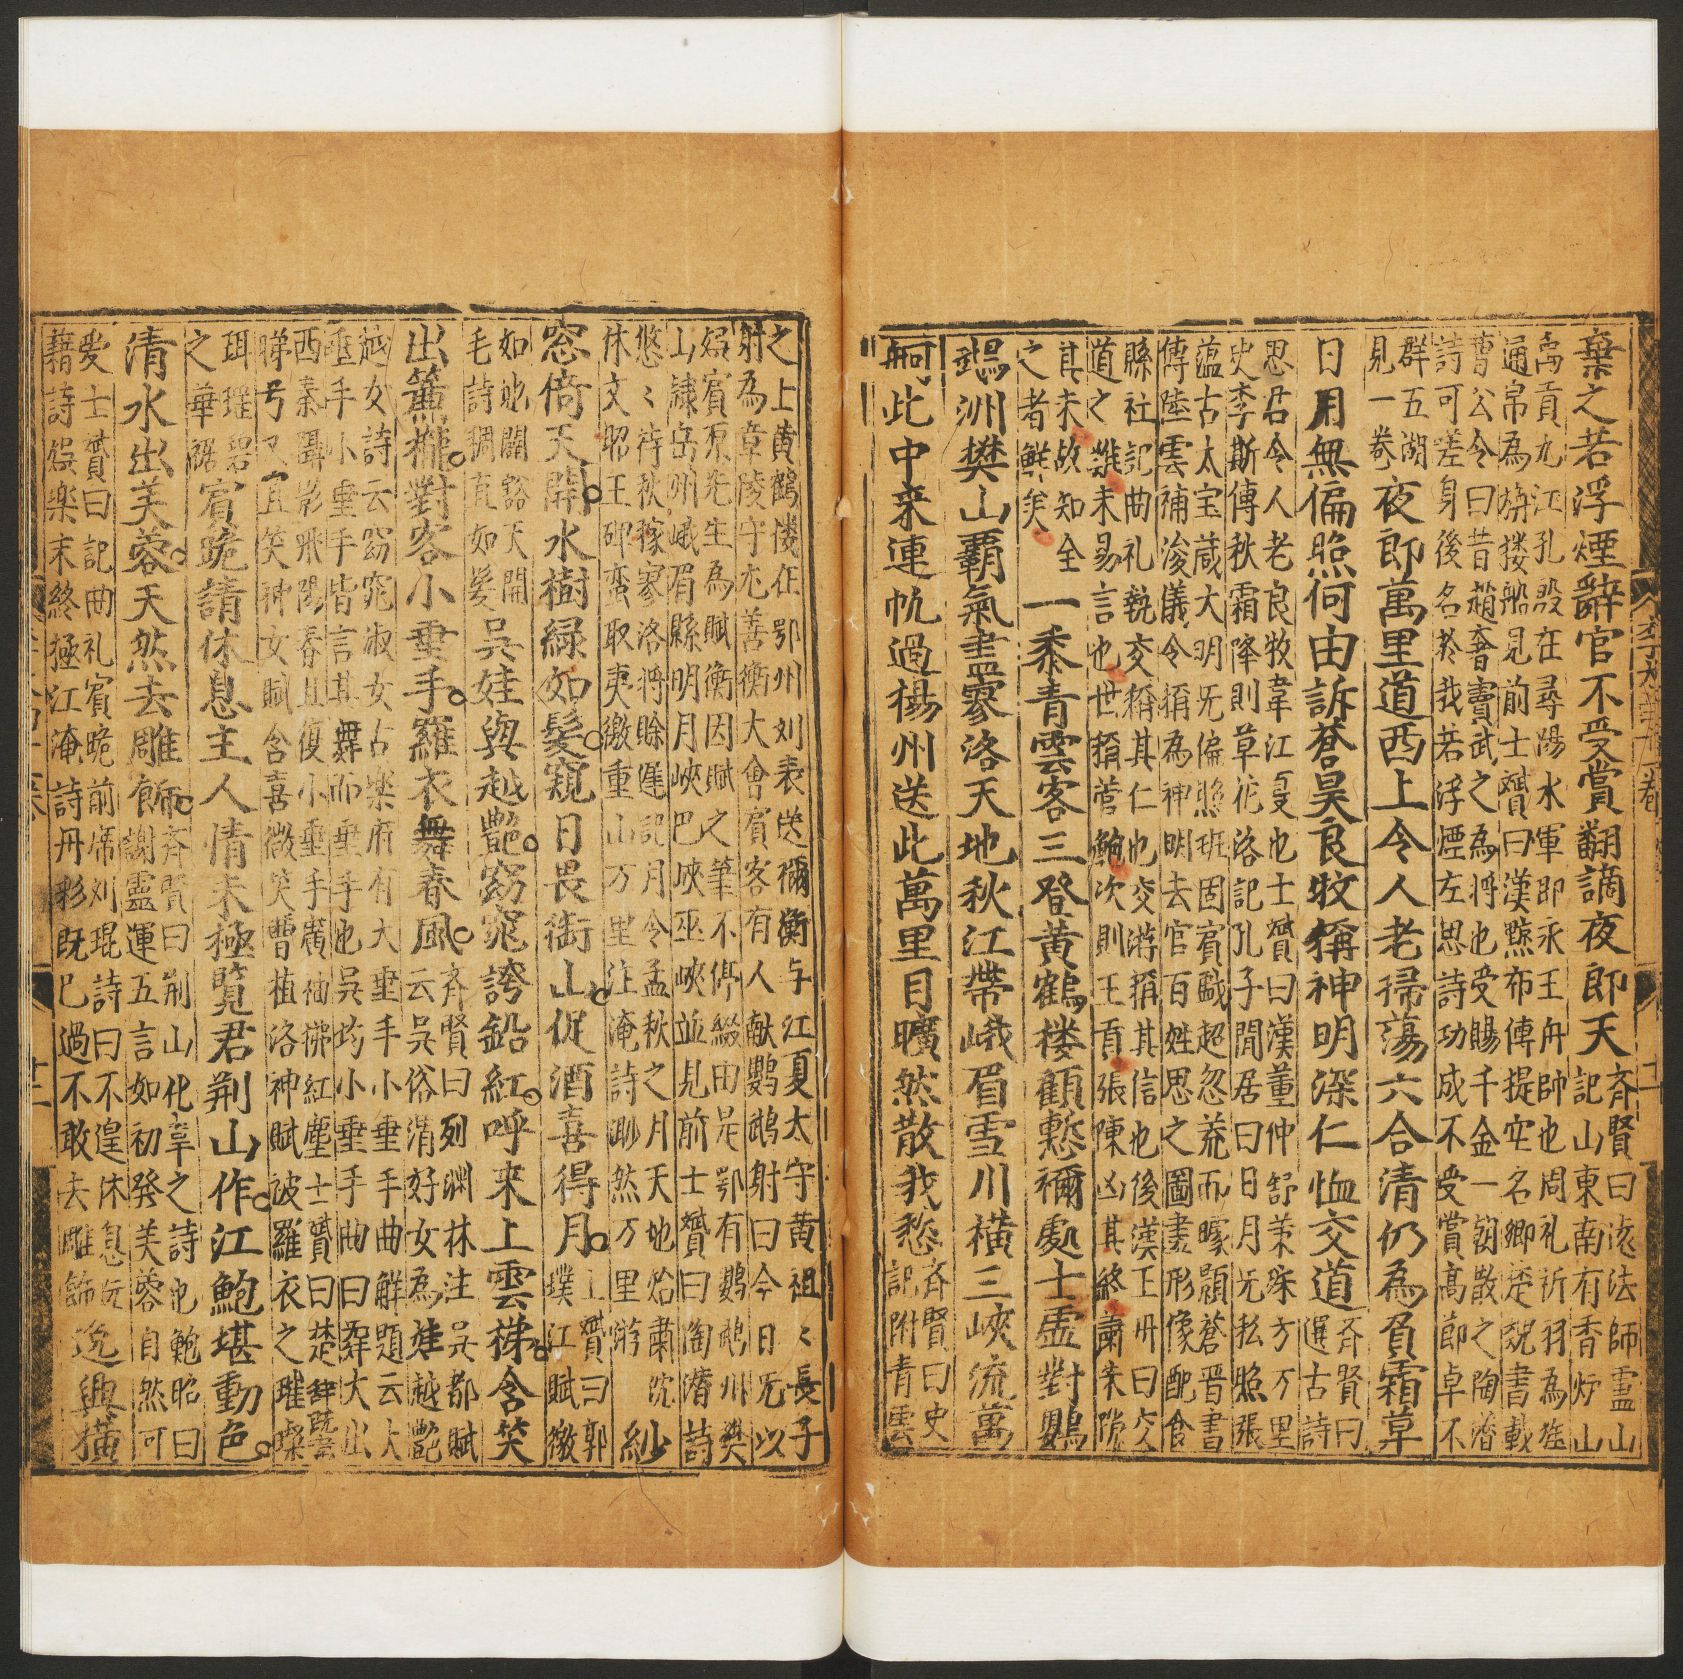 棄之若浮煙辭官不受賞翻謫夜郎天
齊賢曰遠法師廬山
記山東南有香炉山
禹貢九江孔殷在尋陽水軍即永王舟師也周礼析羽為旌
通帛為旃楼船見前士贇曰漢黥布傳提空名卿楚覜書載
曹公令曰昔趙奢竇武之為將也受賜千金一朝散之陶潜
詩可嗟身後名於我若浮煙左思詩功成不受賞高節卓不
群五湖
見一巻
夜郎萬里道西上令人老掃蕩六合清仍為負霜草
日月無偏照何由訴蒼昊良牧稱神明深仁恤交道
齊賢曰
選古詩
思君令人老良牧韋江夏也士贇曰漢董仲舒策琛方万里
史李斯傳秋霜降則草花洛記孔子閒居曰日月无私照張
藴古太宝葴大明旡偏照班固賓戯超忽荒而躆顥蒼晋書
傳陸雲補浚儀令稱為神明去官百姓思之圖畫形像配食
縣社記曲礼執交稱其仁也交游稱其信也後漢王丹曰交
道之難未易言也世稱菅鮑次則王貢張陳凶其終蕭朱隙
其末故知全
之者鮮矣
一黍青雲客三登黄鶴楼顧慙禰處士虚對鸚
鵡洲樊山覇氣盡寥洛天地秋江帶峨眉雪川横三峽流萬
舸此中来連帆過楊州送此萬里目曠然散我愁
齊賢曰史
記附青雲
之上黄鶴楼在鄂州刘表送禰衡与江夏太守黄祖〻長子
射為章陵守尤善衡大會賓客有人献鸚鵡射曰今日旡以
娯賓厡先生為賦衡因賦之筆不停綴由是鄂有鸚鵡州樊
山隷岳州峨眉縣明月峽巴峽巫峽並見前士贇曰陶潜詩
悠〻待秋稼寥洛將賖遲記月令孟秋之月天地始肅沈
休文昭王碑蛮取夷徼重山万里注淹詩渺然万里游
紗
窓倚天開水樹緑如髪窺日畏銜山促酒喜得月
士贇曰郭
璞江賦徼
如地闢谿天開
毛詩稠直如髪
呉娃與越艶窈窕誇鉛紅呼来上雲梯含笑
出簾櫳對客小垂手羅衣舞春風
齊賢曰列淵林注呉都賦
云呉俗谓好女為娃越艶
越女詩云窈窕淑女古楽府有大垂手小垂手曲解題云大
垂手小垂手皆言其舞而垂手也呉均小垂手曲曰舞大出
西秦躡影飛陽春且復小垂手廣袖拂紅塵士贇曰楚辞旣含
睇兮又宜笑神女賦含喜微笑曹植洛神賦披羅衣之璀璨
珥瑶碧
之華裾
賓跪請休息主人情未極覧君荆山作江鮑堪動色
清水出芙蓉天然去雕飾
齊賢曰荆山化章之詩也鮑昭曰
謝靈運五言如初癸芙蓉自然可
愛士贇曰記曲礼賓跪前席刘琨詩曰不遑休息阮
藉詩娯楽未終極江淹詩丹彩旣已過不敢去雕飾
逸興横